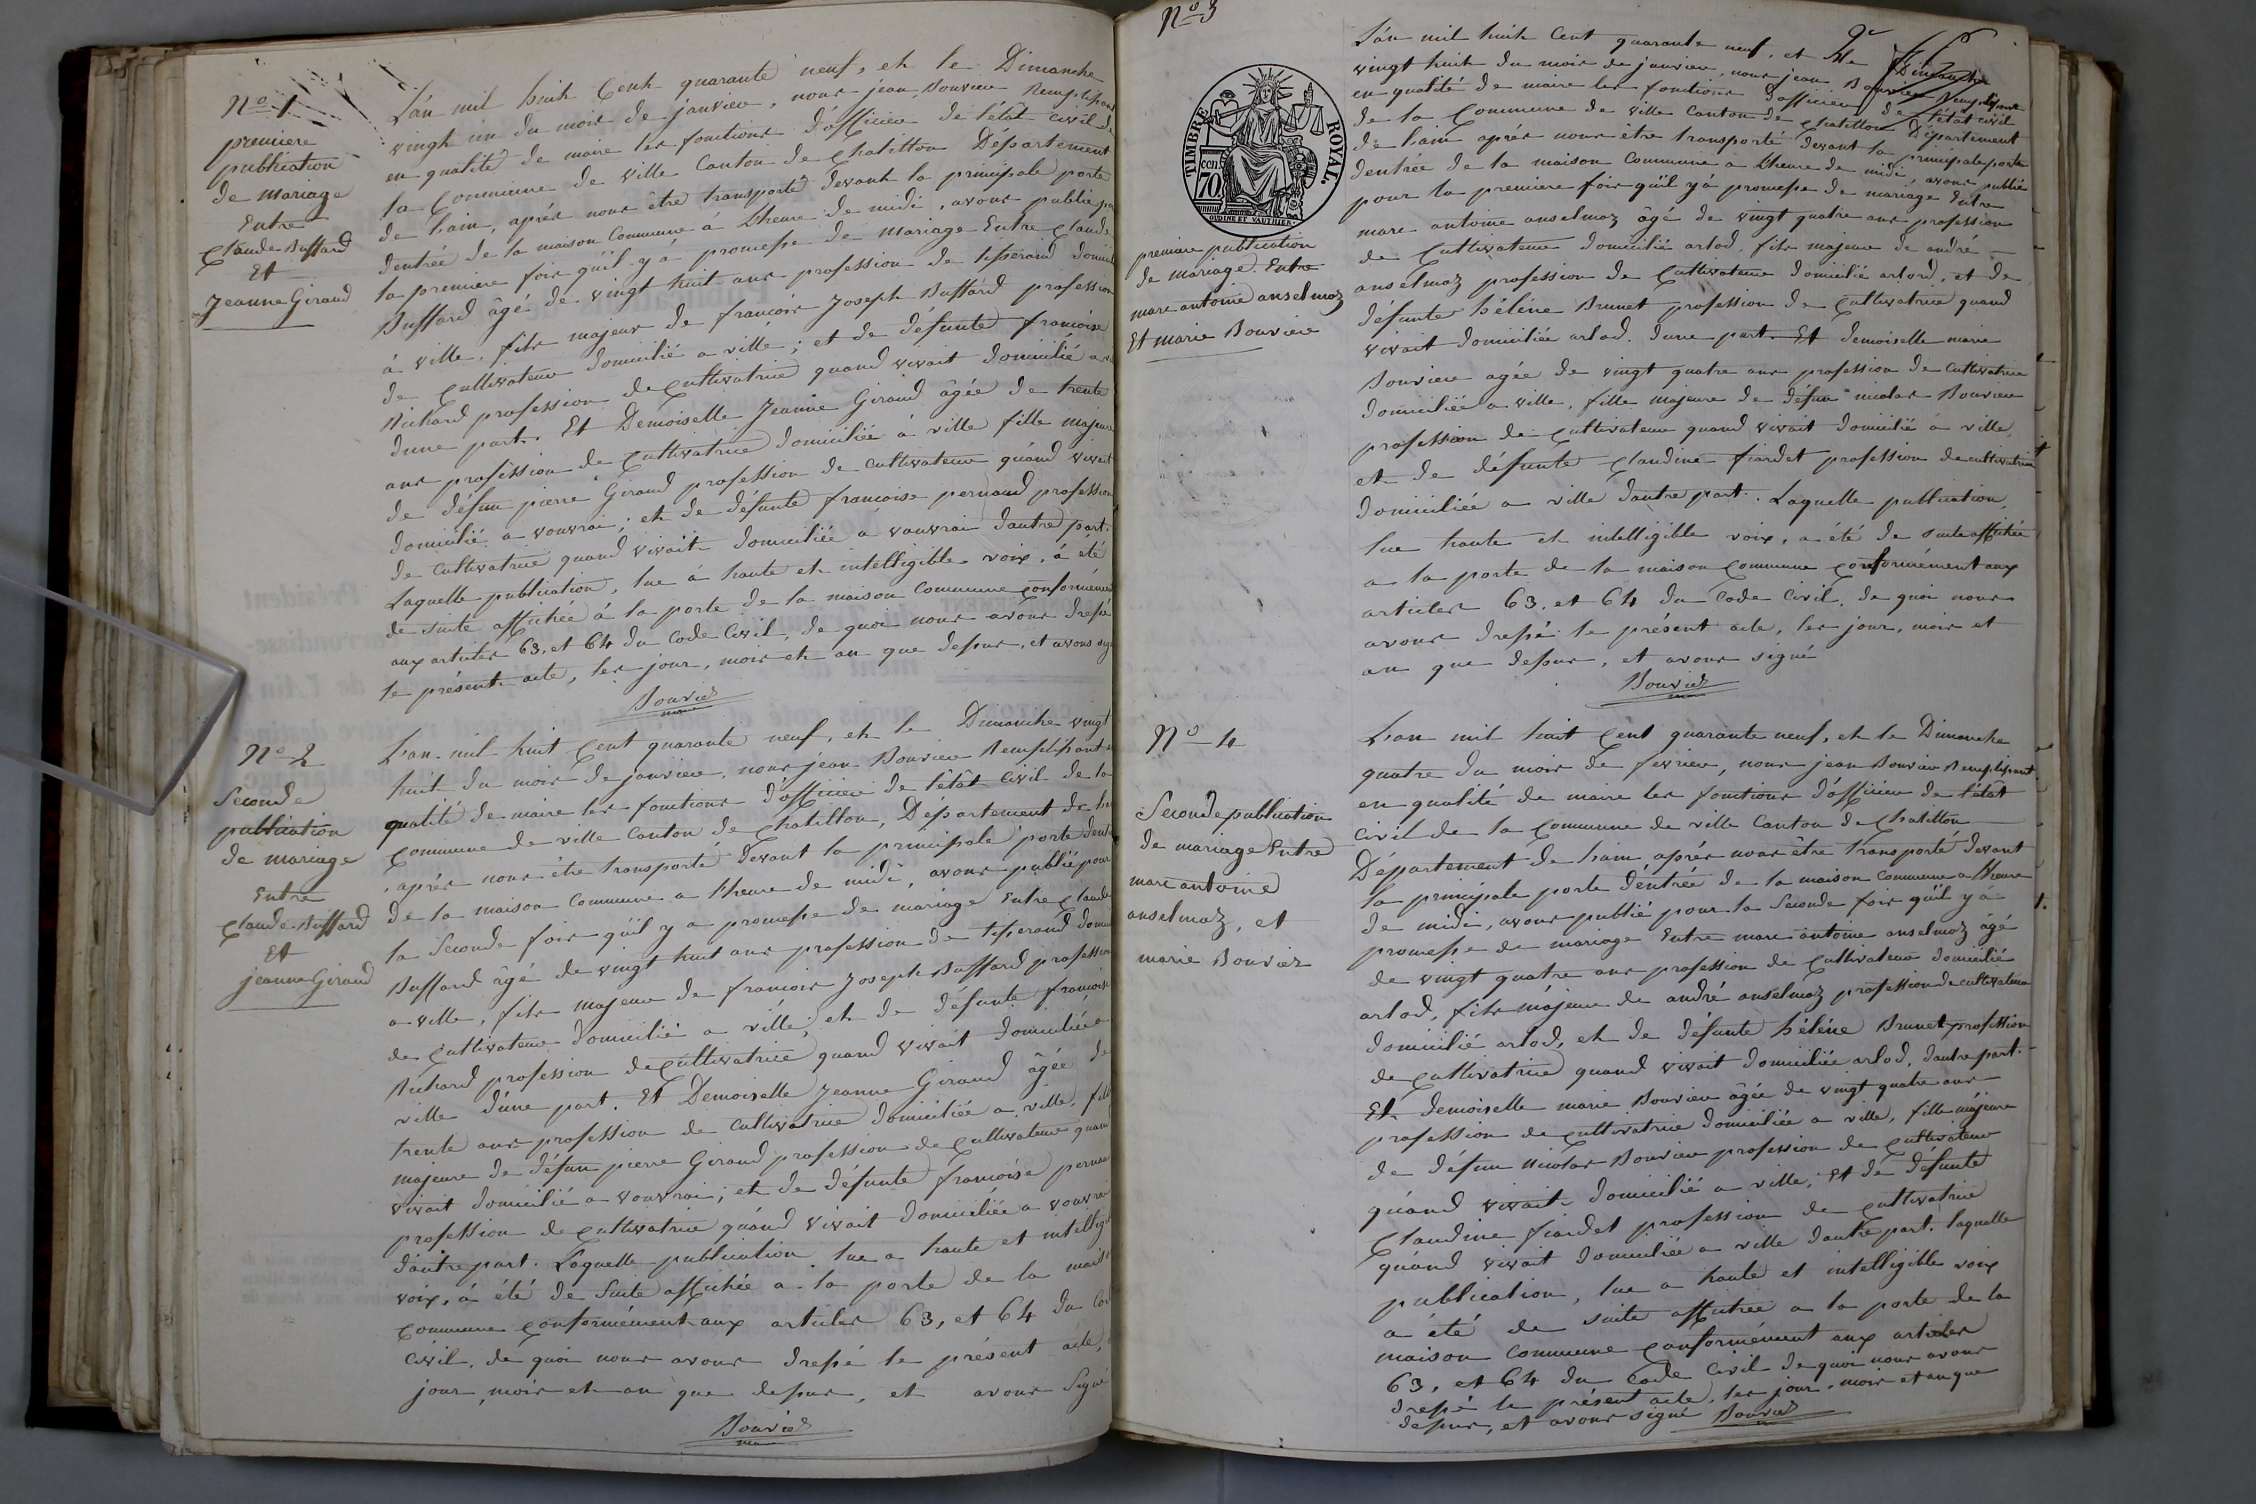 No 1
premiere
publication
de mariage
Entre
Claude Buffard
Et
Jeanne Giraud
L'an mil huit Cent quarante neuf, et le Dimanche
vingt un du mois de janvier, nous jean Bouvier Remplissant
en qualité de maire les fonctions d'officier de l'état civil de
la Commune de ville Canton de Chatillon Département
de Lain, aprés nous être transporté devant la principale porte
dentrée de la maison Commune à Lheure de midi, avons publié pour
la premiere fois qu'il y á promesse de mariage Entre Claude
Buffard âgé de vingt huit ans profession de tisserand domicilié
á ville, fils majeur de francois Joseph Buffard profession
de Cultivateur domicilié a ville; et de défunte francoise
Richard profession de Cultivatrice quand vivait domicilié a
dune part. Et Demoiselle Jeanne Giraud âgée de trente
ans profession de Cultivatrice domiciliée á ville fille majeure
de défun pierre Giraud profession de cultivateur quánd vivait
domicilié a vouvrai; et de défunte francoise pernaud profession
de cultivatrice quand vivait domiciliée a vouvrai dautre part.
Laquelle publication, lue á haute et intelligible voix, á été
de suite affichée á la porte de la maison Commune conformément
aux articles 63, et 64 du Code Civil, de quoi nous avons dressé
le présent acte, les jour, mois et an que dessus, et avons signé
Bouvier
No 2
Seconde
publication
de mariage
Entre
Claude Buffard
Et
jeanne Giraud
L'an mil huit Cent quarante neuf, et le Dimanche vingt
huit du mois de janvier, nous jean Bouvier Remplissant en
qualité de maire les fonctions d'officier de l'état civil de la
Commune de ville Canton de Chatillon, Département de Lain
, aprés nous être transporté devant la principale porte dentrée
de la maison Commune a Lheure de midi, avons publié pour
la Seconde fois qu'il y a promesse de mariage Entre Claude
Buffard âgé de vingt huit ans profession de tisserand domicilié
a ville, fils majeur de francois Joseph Buffard profession
de Cultivateur domicilié a ville; et de défunte francoise
Richard profession de Cultivatrice quand vivait domiciliée a
ville d'une part. Et Demoiselle Jeanne Giraud âgée de
trente ans profession de Cultivatrice domiciliée a ville, fille
majeure de défun pierre Giraud profession de Cultivateur quand
vivait domicilié a vouvrai; et de défunte francoise pernaud
profession de Cultivatrice quánd vivait domiciliée a vouvrai
dautre part. Laquelle publication lue a haute et intelligible
voix, á été de suite affichée a la porte de la maison
Commune conformément aux articles 63, et 64 du Code
Civil, de quoi nous avons dressé le présent acte,
jour, mois et an que dessus, et avons signé
Bouvier
No 3
TIMBRE ROYAL.
CEN
70
OUDINE ET VAUTHIER.
premiere publication
de mariage Entre
marc antoine anselmoz
Et marie Bouvier
L'án mil huit Cent quarante neuf, et le Dimanche
vingt huit du mois de janvier, nous jean Bouvier Remplissant
en qualité de maire les fonctions d'officier de l'état civil
de la Commune de ville Canton de Chatillon Département
de Lain aprés nous être transporté devant la principale porte
dentrée de la maison Commune a Lheure de midi, avons publié
pour la premiere fois qu'il y á promesse de mariage Entre
marc antoine anselmoz âgé de vingt quatre ans profession
de Cultivateur domicilié arlod, fils majeur de andré
anselmoz profession de Cultivateur domicilié arlod, et de
défunte héléne Brunet profession de Cultivatrice quand
vivait domiciliée arlod. dune part. Et demoiselle marie
Bouvier agée de vingt quatre ans profession de Cultivatrice
domiciliée a ville, fille majeure de défun nicolas Bouvier
profession de Cultivateur quand vivait domicilié a ville,
et de défunte Claudine fiardet profession de cultivatrice
domiciliée a ville dautre part. Laquelle publication,
lue haute et intelligible voix, a été de suite affichée
a la porte de la maison Commune conformément aux
articles 63. et 64 du Code Civil, de quoi nous
avons dressé le présent acte, les jour, mois et
an que dessus, et avons signé
Bouvier
No 4
Seconde publication
de mariage Entre
marc antoine
anselmoz, et
marie Bouvier
L'an mil huit Cent quarante neuf, et le Dimanche
quatre du mois de fevrier, nous jean Bouvier Remplissant
en qualité de maire les fonctions d'officier de l'état
Civil de la Commune de ville Canton de Chatillon
Département de Lain, aprés nous être transporté devant
la principale porte d'entrée de la maison Commune a Lheure
de midi, avons publié pour la Seconde fois qu'il y á
promesse de mariage Entre marc antoine anselmoz âgé
de vingt quatre ans profession de Cultivateur domicilié
arlod, fils májeur de andré anselmoz profession de cultivateur
domicilié arlod, et de défunte héléne Brunet profession
de Cultivatrice quand vivait domiciliée arlod, dautre part.
Et demoiselle marie Bouvier âgée de vingt quatre ans
profession de Cultivatrice domiciliée a ville, fille májeure
de défun nicolas Bouvier profession de Cultivateur
quánd vivait domicilié a ville; Et de défunte
Claudine fiardet profession de Cultivatrice
quánd vivait domiciliée a ville dautre part. laquelle
publication, lue a haute et intelligible voix
a été de suite affichée a la porte de la
maison Commune conformément aux articles
63, et 64 du Code Civil de quoi nous avons
dressé le présent acte, les jour, mois et an que
dessus, et avons signé Bouvier